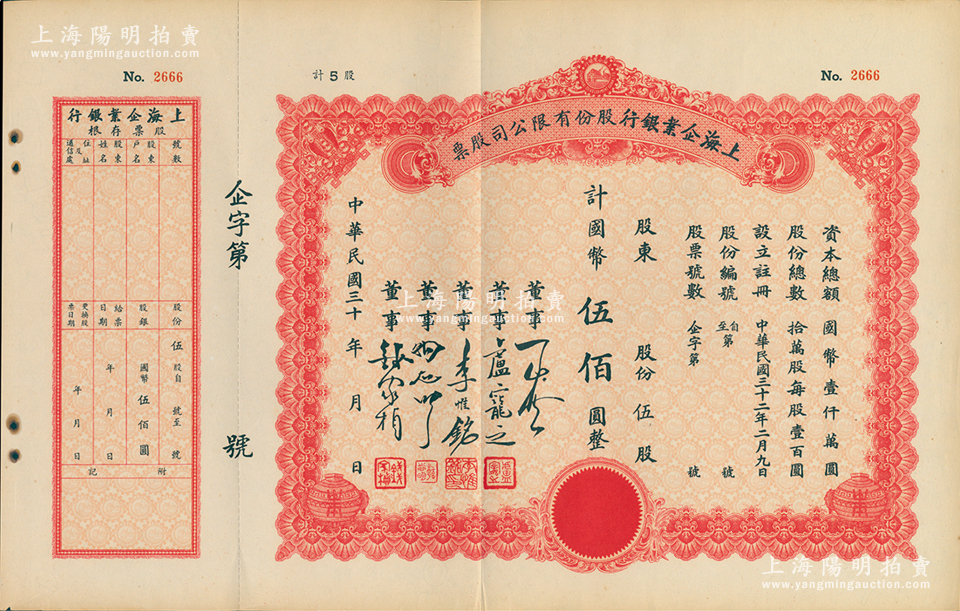 上海陽明拍賣
www.yangmingauction.com
No. 2666
計5股
No. 2666
上海企業銀行股份有限公司股票
資本總額 國幣壹仟萬圓
股份總數 拾萬股每股壹百圓
設立註冊 中華民國三十二年二月九日
股份編號 自第至 號
股票號數 企字第 號
股東 股份伍股
計國幣伍佰圓整
董事
董事 盧寵之
董事 李惟銘
董事
董事
中華民國三十年月日
企字第 號
上海企業銀行
股票存根
號數
股東戶名
股東姓名
住址及通信處
股份 伍股自 號至 號
股銀 國幣伍佰圓
給票日期 年 月 日
更換股票日期 年 月 日
附記
上海陽明拍賣
www.yangmingauction.com
上海陽明拍賣
www.yangmingauction.com